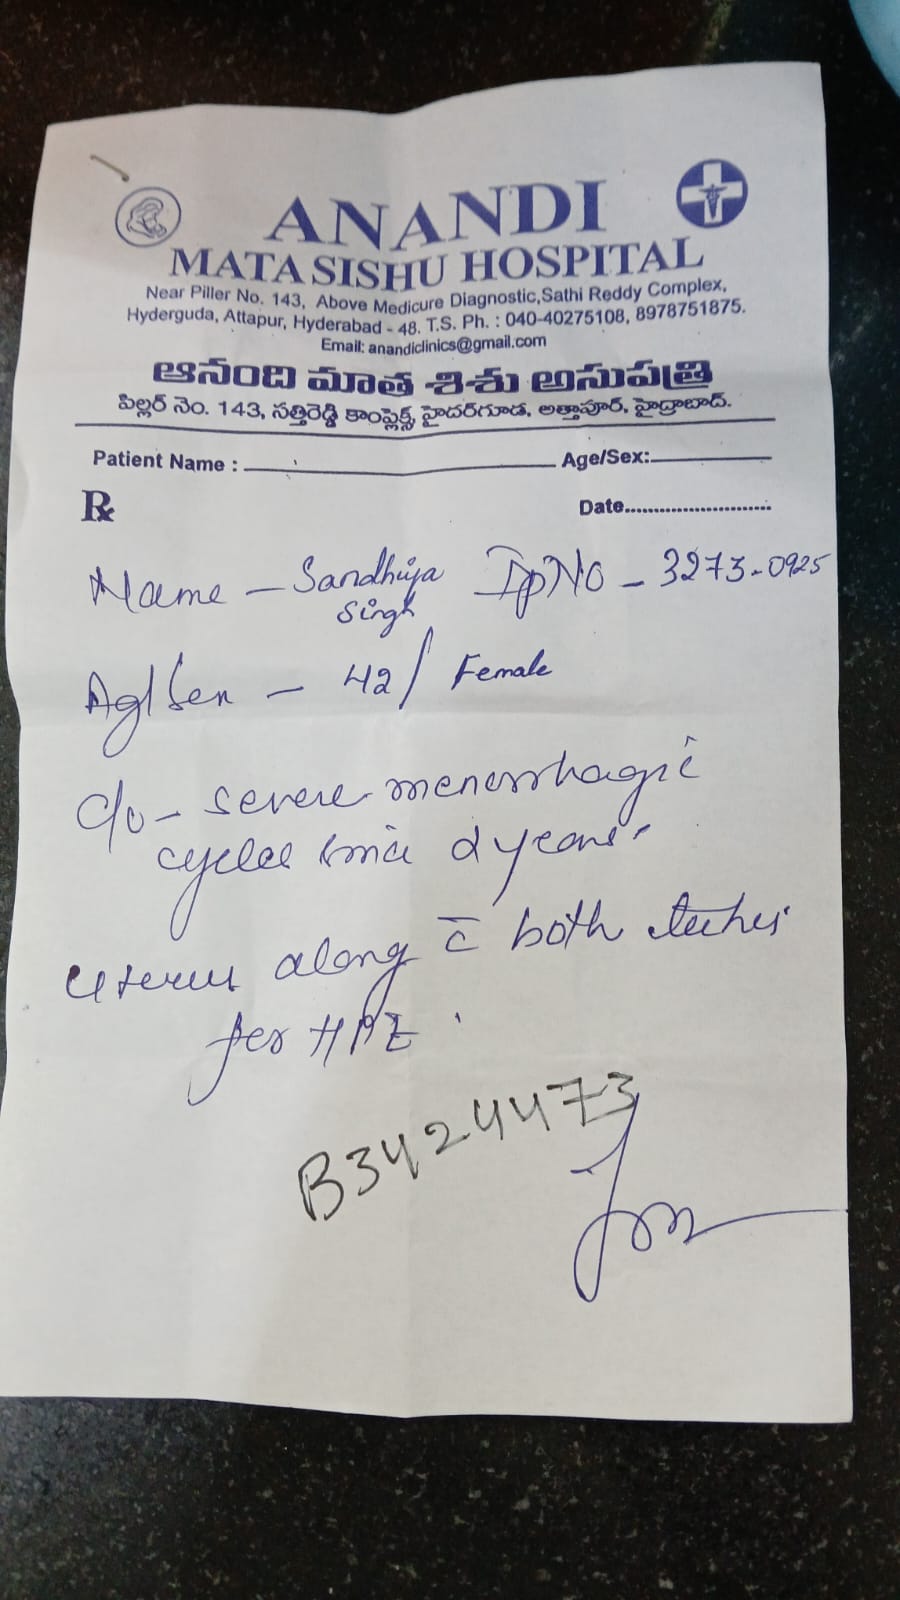 ANANDI
MATA SISHU HOSPITAL
Near Piller No. 143, Above Medicure Diagnostic,Sathi Reddy Complex,
Hyderguda, Attapur, Hyderabad - 48. T.S. Ph. : 040-40275108, 8978751875.
Email: anandiclinics@gmail.com
ఆనంది మాత శిశు అసుపత్రి
పిల్లర్ నెం. 143, సత్తిరెడ్డి కాంప్లెక్స్, హైదర్‌గూడ, అత్తాపూర్, హైద్రాబాద్.
Patient Name : Age/Sex:
Rx Date
Name - Sandhya Singh IpNo - 3273-0925
Ag/Sex - 42/ Female
C/o - Severe menorrhagic
cycles since 2 years.
Uterus along c̄ both tubes
for HPE.
B3424473